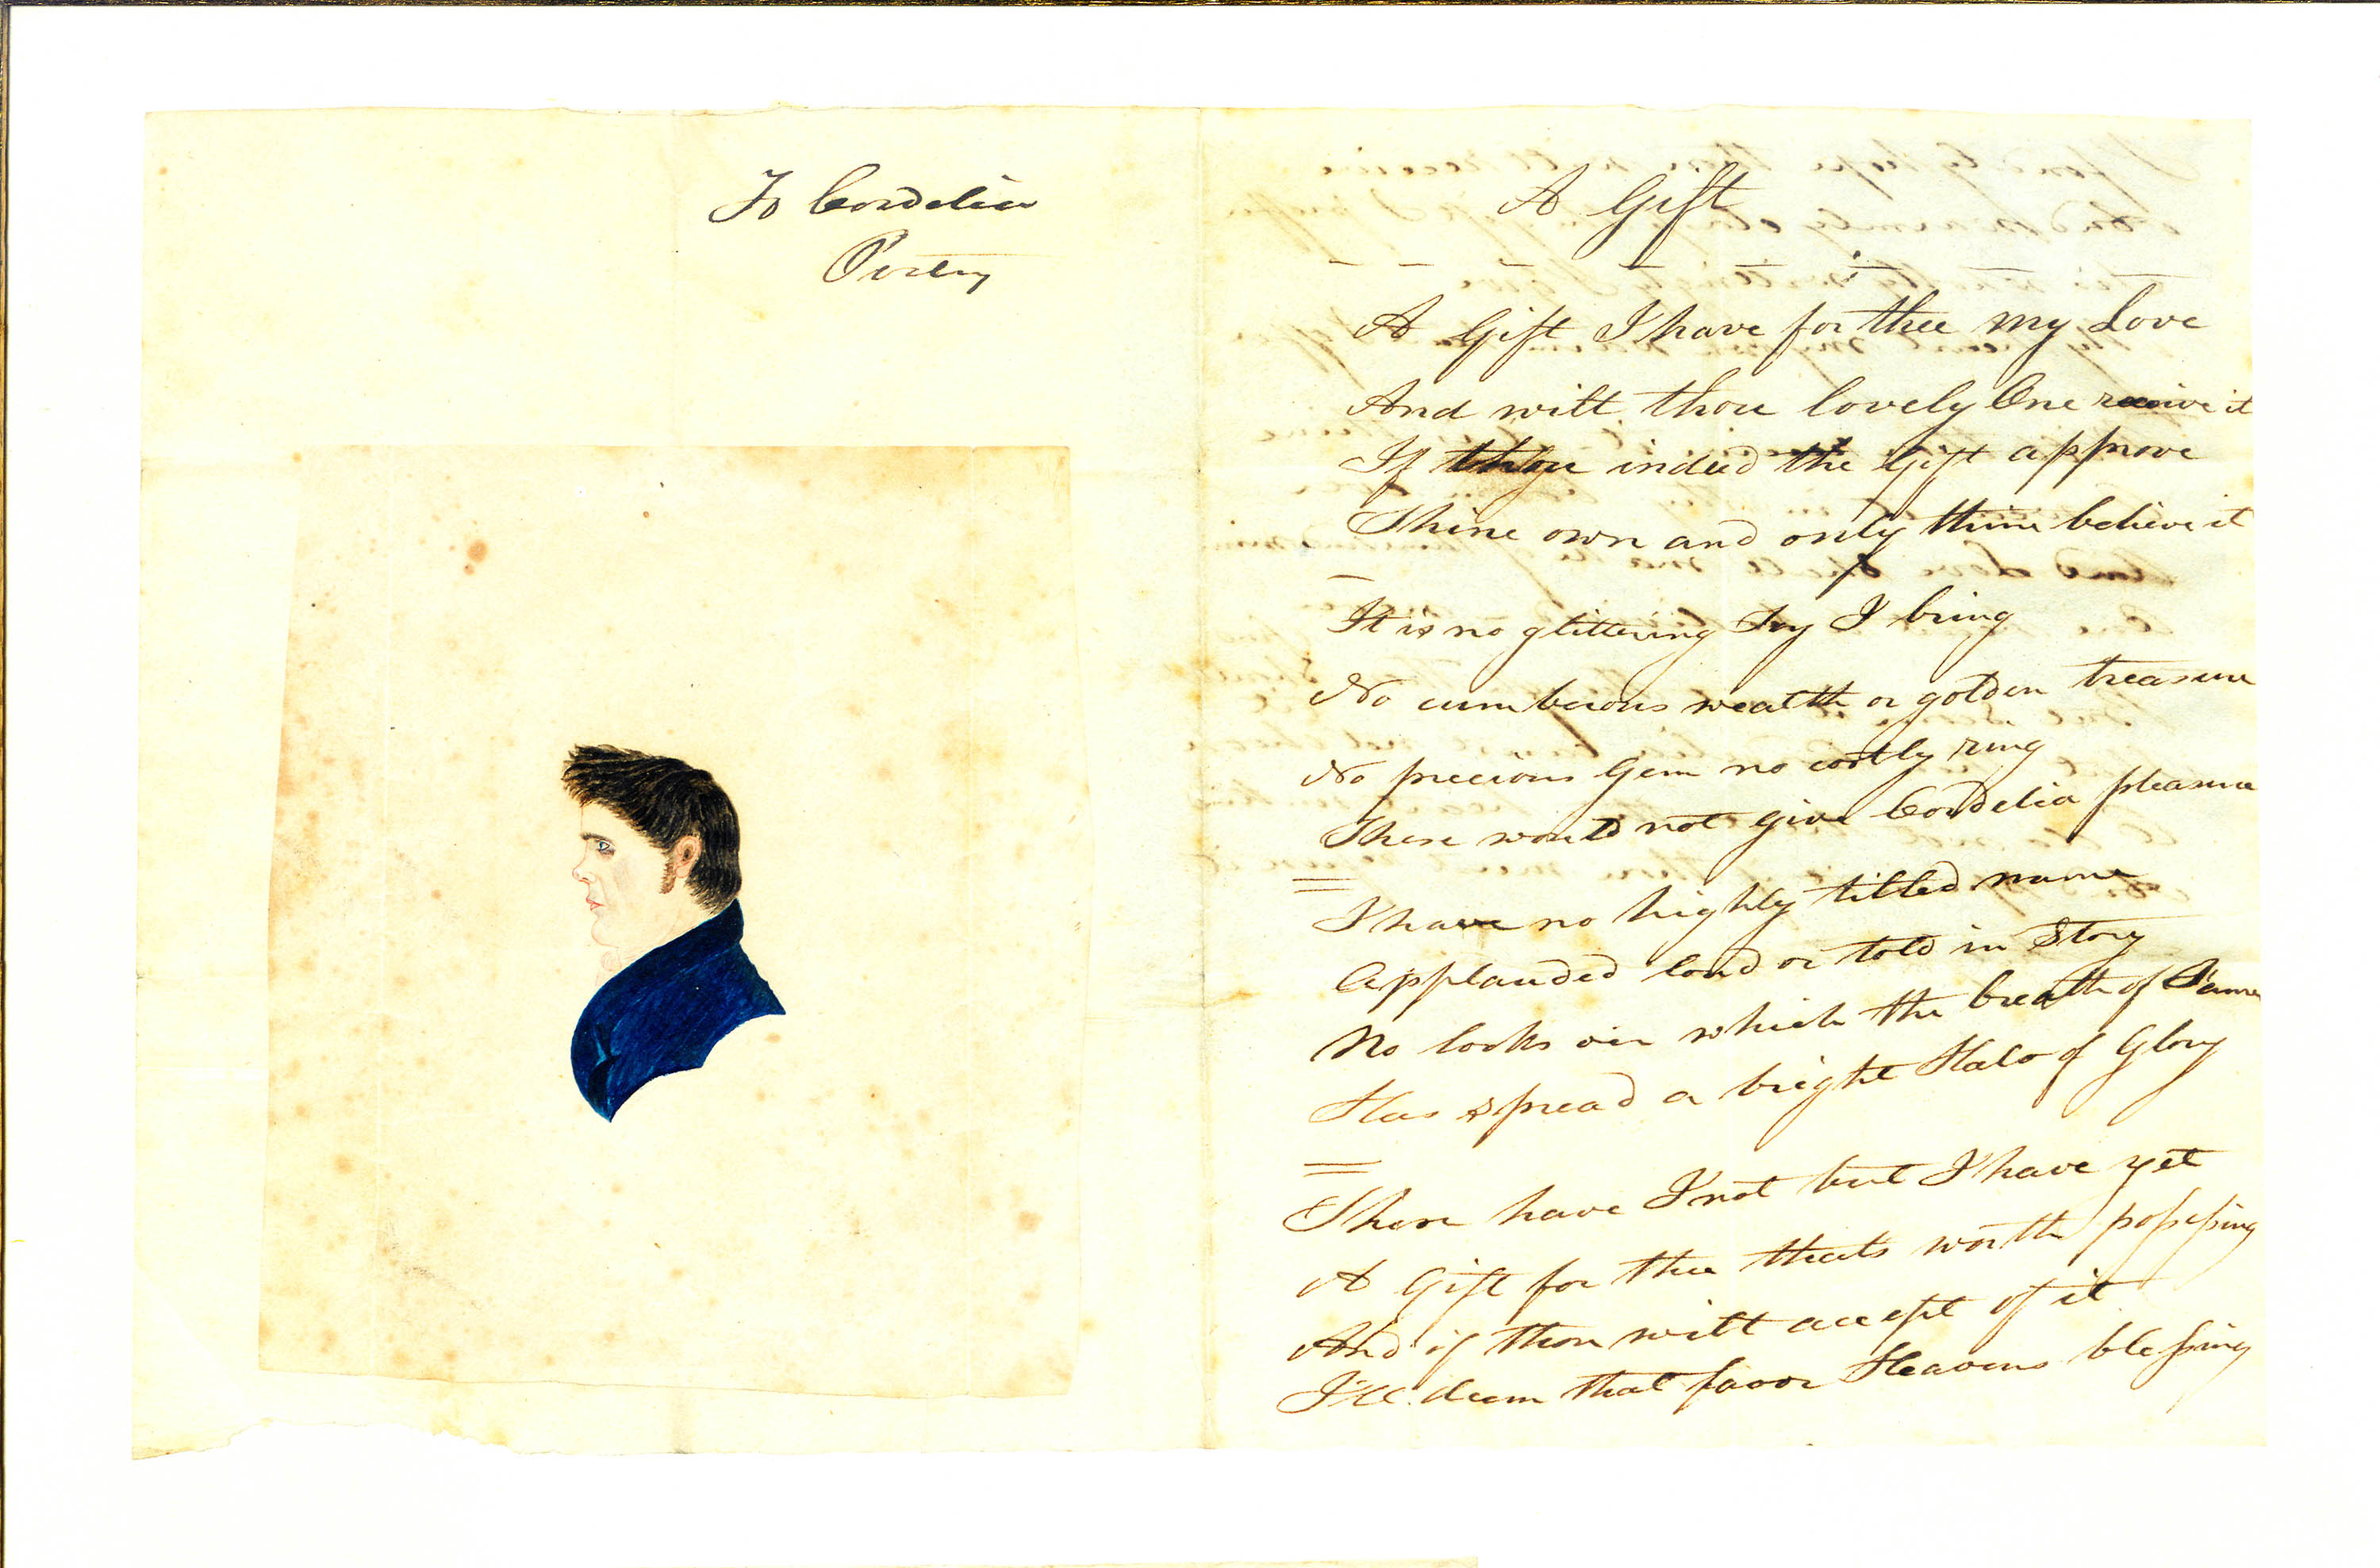 To Cordelia
Poetry
A Gift
A Gift I have for thee my Love
And wilt thou lovely One receive it
If thou indeed the Gift approve
Thine own and only thine believe it
It is no glittering Toy I bring
No cumberous wealth or golden treasure
No precious Gem no costly ring
These would not give Cordelia pleasure
I have no highly titled name
Applauded loud or told in Story
No looks oer which the breath of Fame
Has spread a bright Halo of Glory
These have I not but I have yet
A Gift for thee thats worth possessing
And if thou wilt accept of it
I'll deem that favor Heavens blessing